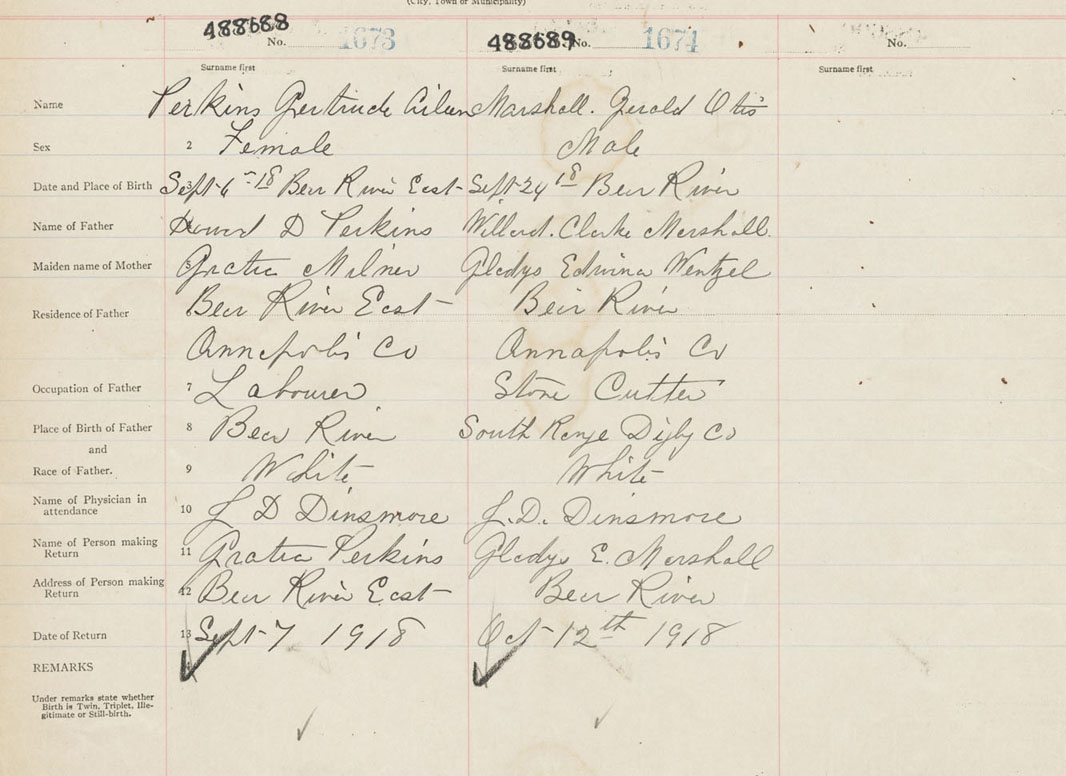 (City, Town or Municipality)
488688 488689
No. 1673 No. 1674 No.
Surname first Surname first Surname first
Name Perkins Gertrude Aileen Marshall. Gerald Otis
Sex 2 Female Male
Date and Place of Birth 3 Sept 6 -18 Bear River East Sept 24 18 Bear River
Name of Father Howard D Perkins Willard. Clarke Marshall.
Maiden name of Mother 5 Gratia Milner Gladys Edwina Wentzel
Residence of Father Bear River East Bear River
Annapolis Co Annapolis Co
Occupation of Father 7 Labourer Stone Cutter
Place of Birth of Father 8 Bear River South Range Digby Co
and
Race of Father. 9 White White
Name of Physician in attendance 10 J D Dinsmore J. D. Dinsmore
Name of Person making Return 11 Gratia Perkins Gladys E. Marshall
Address of Person making Return 12 Bear River East Bear River
Date of Return 13 Sept 7 1918 Oct 12th 1918
REMARKS
Under remarks state whether
Birth is Twin, Triplet, Ille-
gitimate or Still-birth.